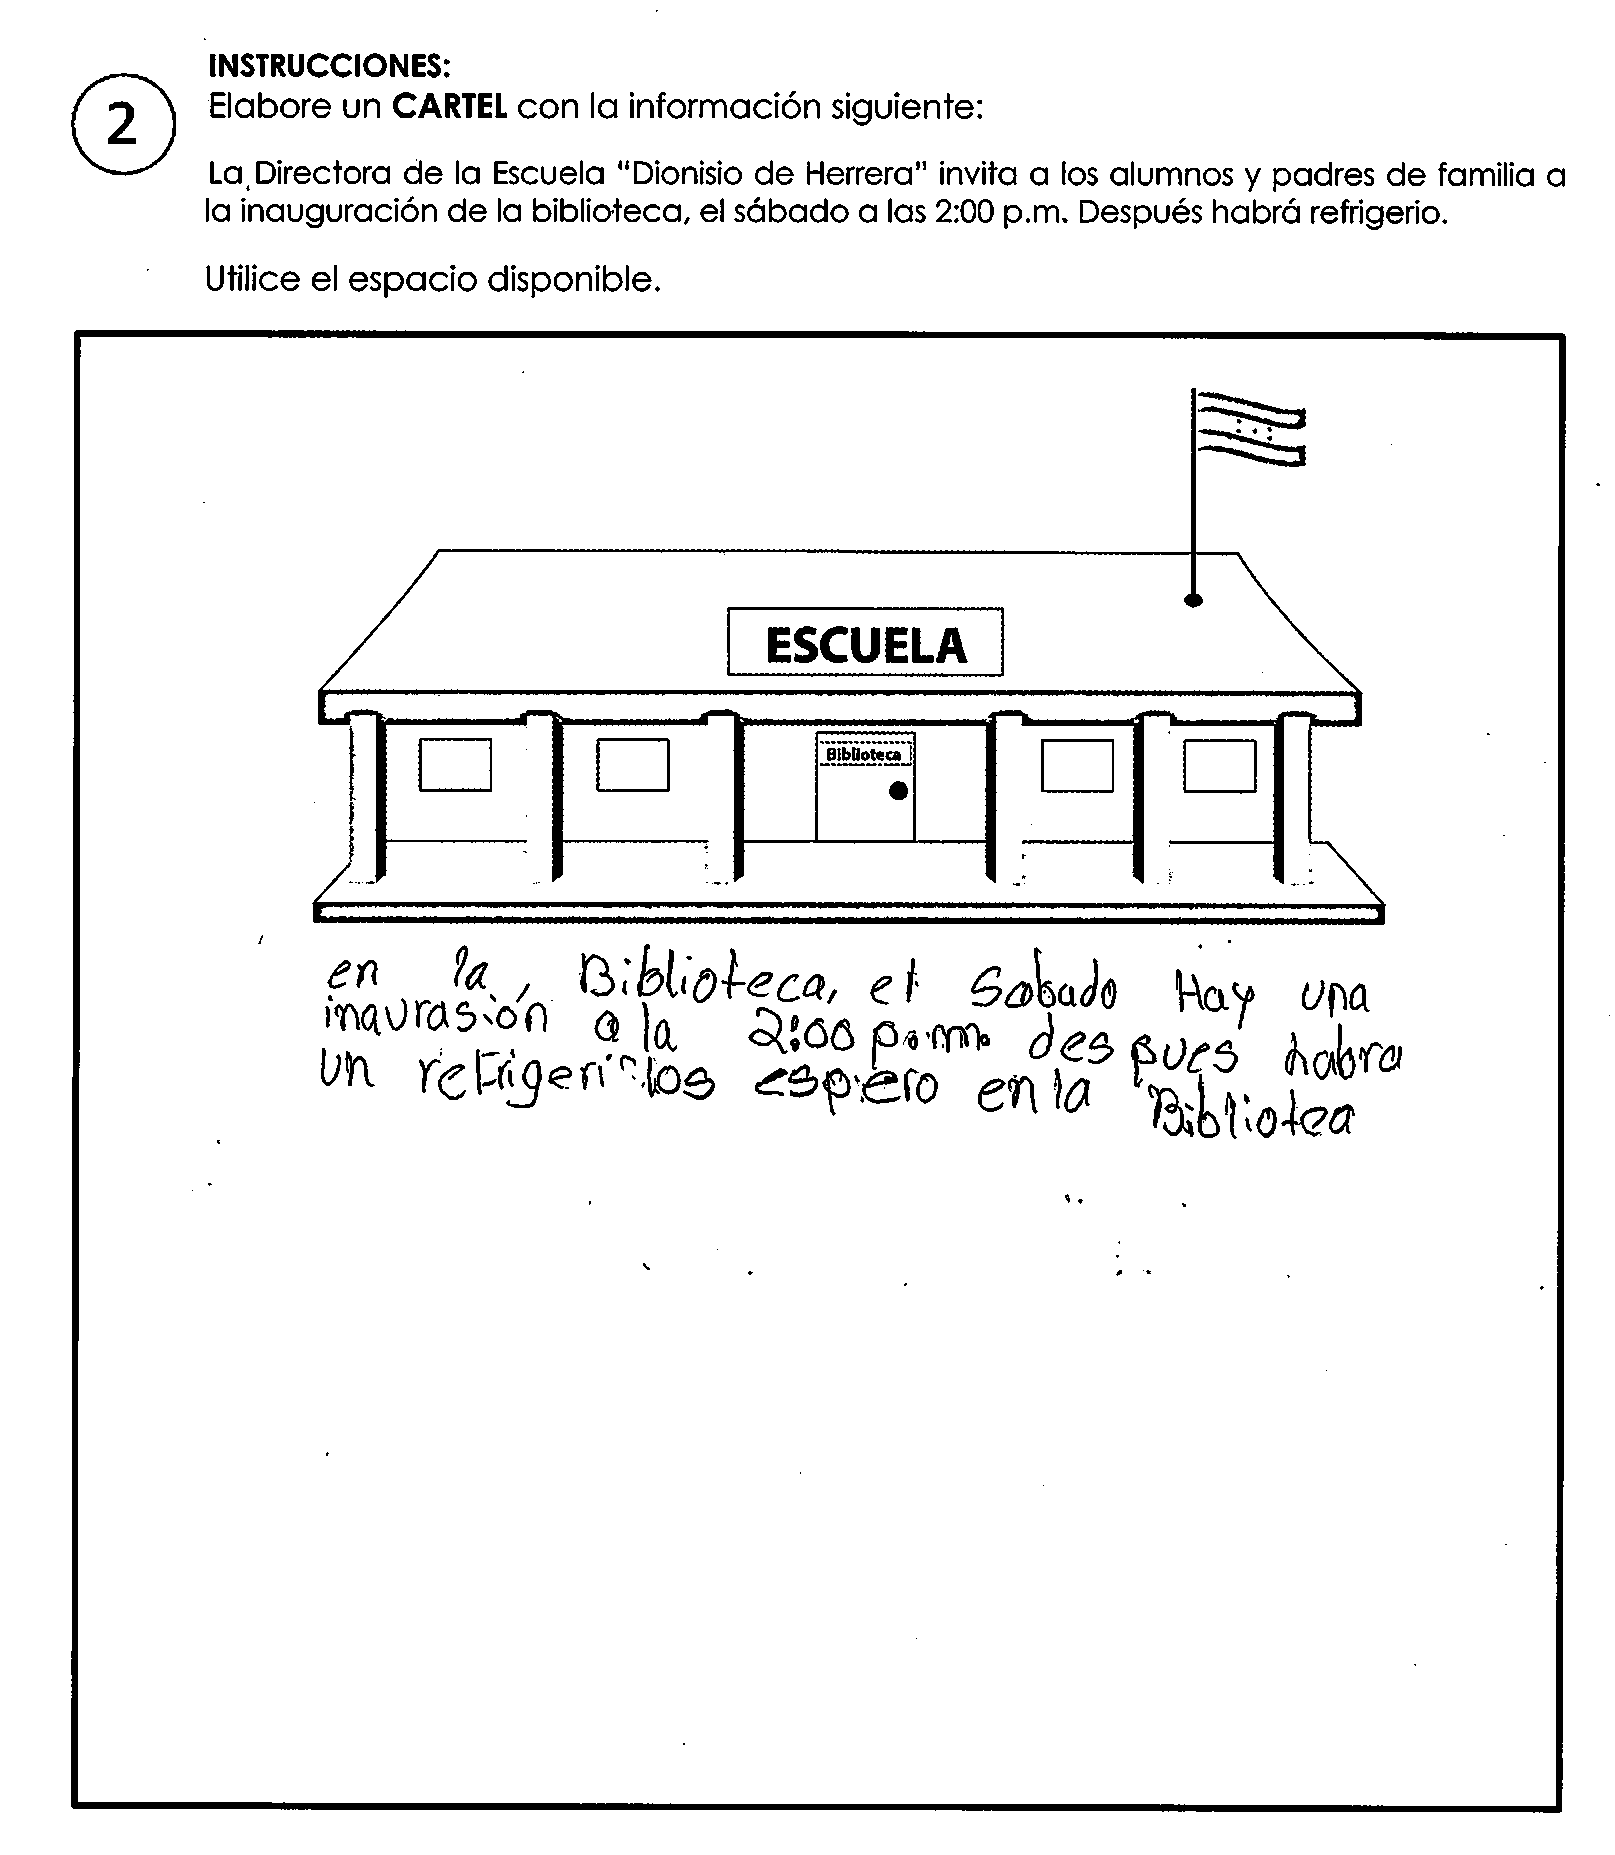 INSTRUCCIONES:
2
Elabore un CARTEL con la información siguiente:
La Directora de la Escuela "Dionisio de Herrera" invita a los alumnos y padres de familia a
la inauguración de la biblioteca, el sábado a las 2:00 p.m. Después habrá refrigerio.
Utilice el espacio disponible.
ESCUELA
Biblioteca
en la, Biblioteca, el Sabado Hay una
inaurasión a la 2:00 p.m. despues habra
un refrigerio los espero en la Bibliotea